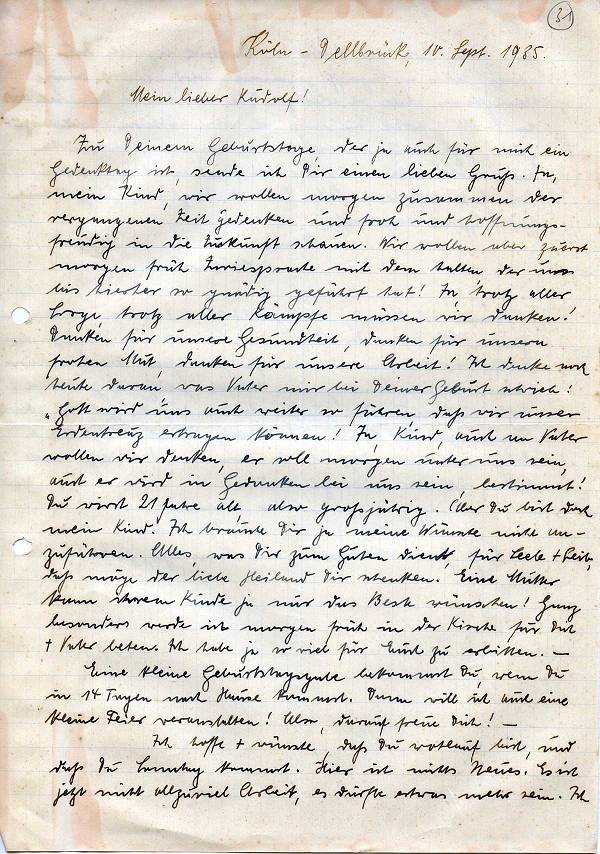 31
Köln - Dellbrück, 10. Sept. 1935.
Mein lieber Rudolf!
Zu Deinem Geburtstage, der ja auch für mich ein
Gedenktag ist, sende ich Dir einen lieben Gruß. Ja,
mein Kind, wir wollen morgen zusammen der
vergangenen Zeit gedenken und froh und hoffnungs-
freudig in die Zukunft schauen. Wir wollen aber zuerst
morgen früh Zwiesprache mit dem halten der uns
bis hierher so gnädig geführt hat! Ja trotz aller
Sorge, trotz aller Kämpfe müssen wir danken!
Danken für unsere Gesundheit, danken für unsern
frohen Mut, danken für unsere Arbeit! Ich denke noch
heute daran was Vater mir bei Deiner Geburt schrieb!
"Gott wird uns auch weiter so führen daß wir unser
Erdenkreuz ertragen können! Ja, Kind, auch an Vater
wollen wir denken, er soll morgen unter uns sein,
auch er wird in Gedanken bei uns sein, bestimmt!
Du wirst 21 Jahre alt also großjährig. Aber Du bist doch
mein Kind. Ich brauche Dir ja meine Wünsche nicht an-
zuführen. Alles, was Dir zum Guten dient, für Seele + Leib,
daß möge der liebe Heiland Dir schenken. Eine Mutter
kann ihrem Kinde ja nur das Beste wünschen! Ganz
besonders werde ich morgen früh in der Kirche für Dich
+ Vater beten. Ich habe ja so viel für Euch zu erbitten. -
Eine kleine Geburtstagsgabe bekommst Du, wenn Du
in 14 Tagen nach Hause kommst. Dann will ich auch eine
kleine Feier veranstalten! Also, darauf freue Dich! -
Ich hoffe + wünsche, daß Du wohlauf bist, und
daß Du Sonntag kommst. Hier ist nichts Neues. Es ist
jetzt nicht allzuviel Arbeit, es dürfte etwas mehr sein. Ich